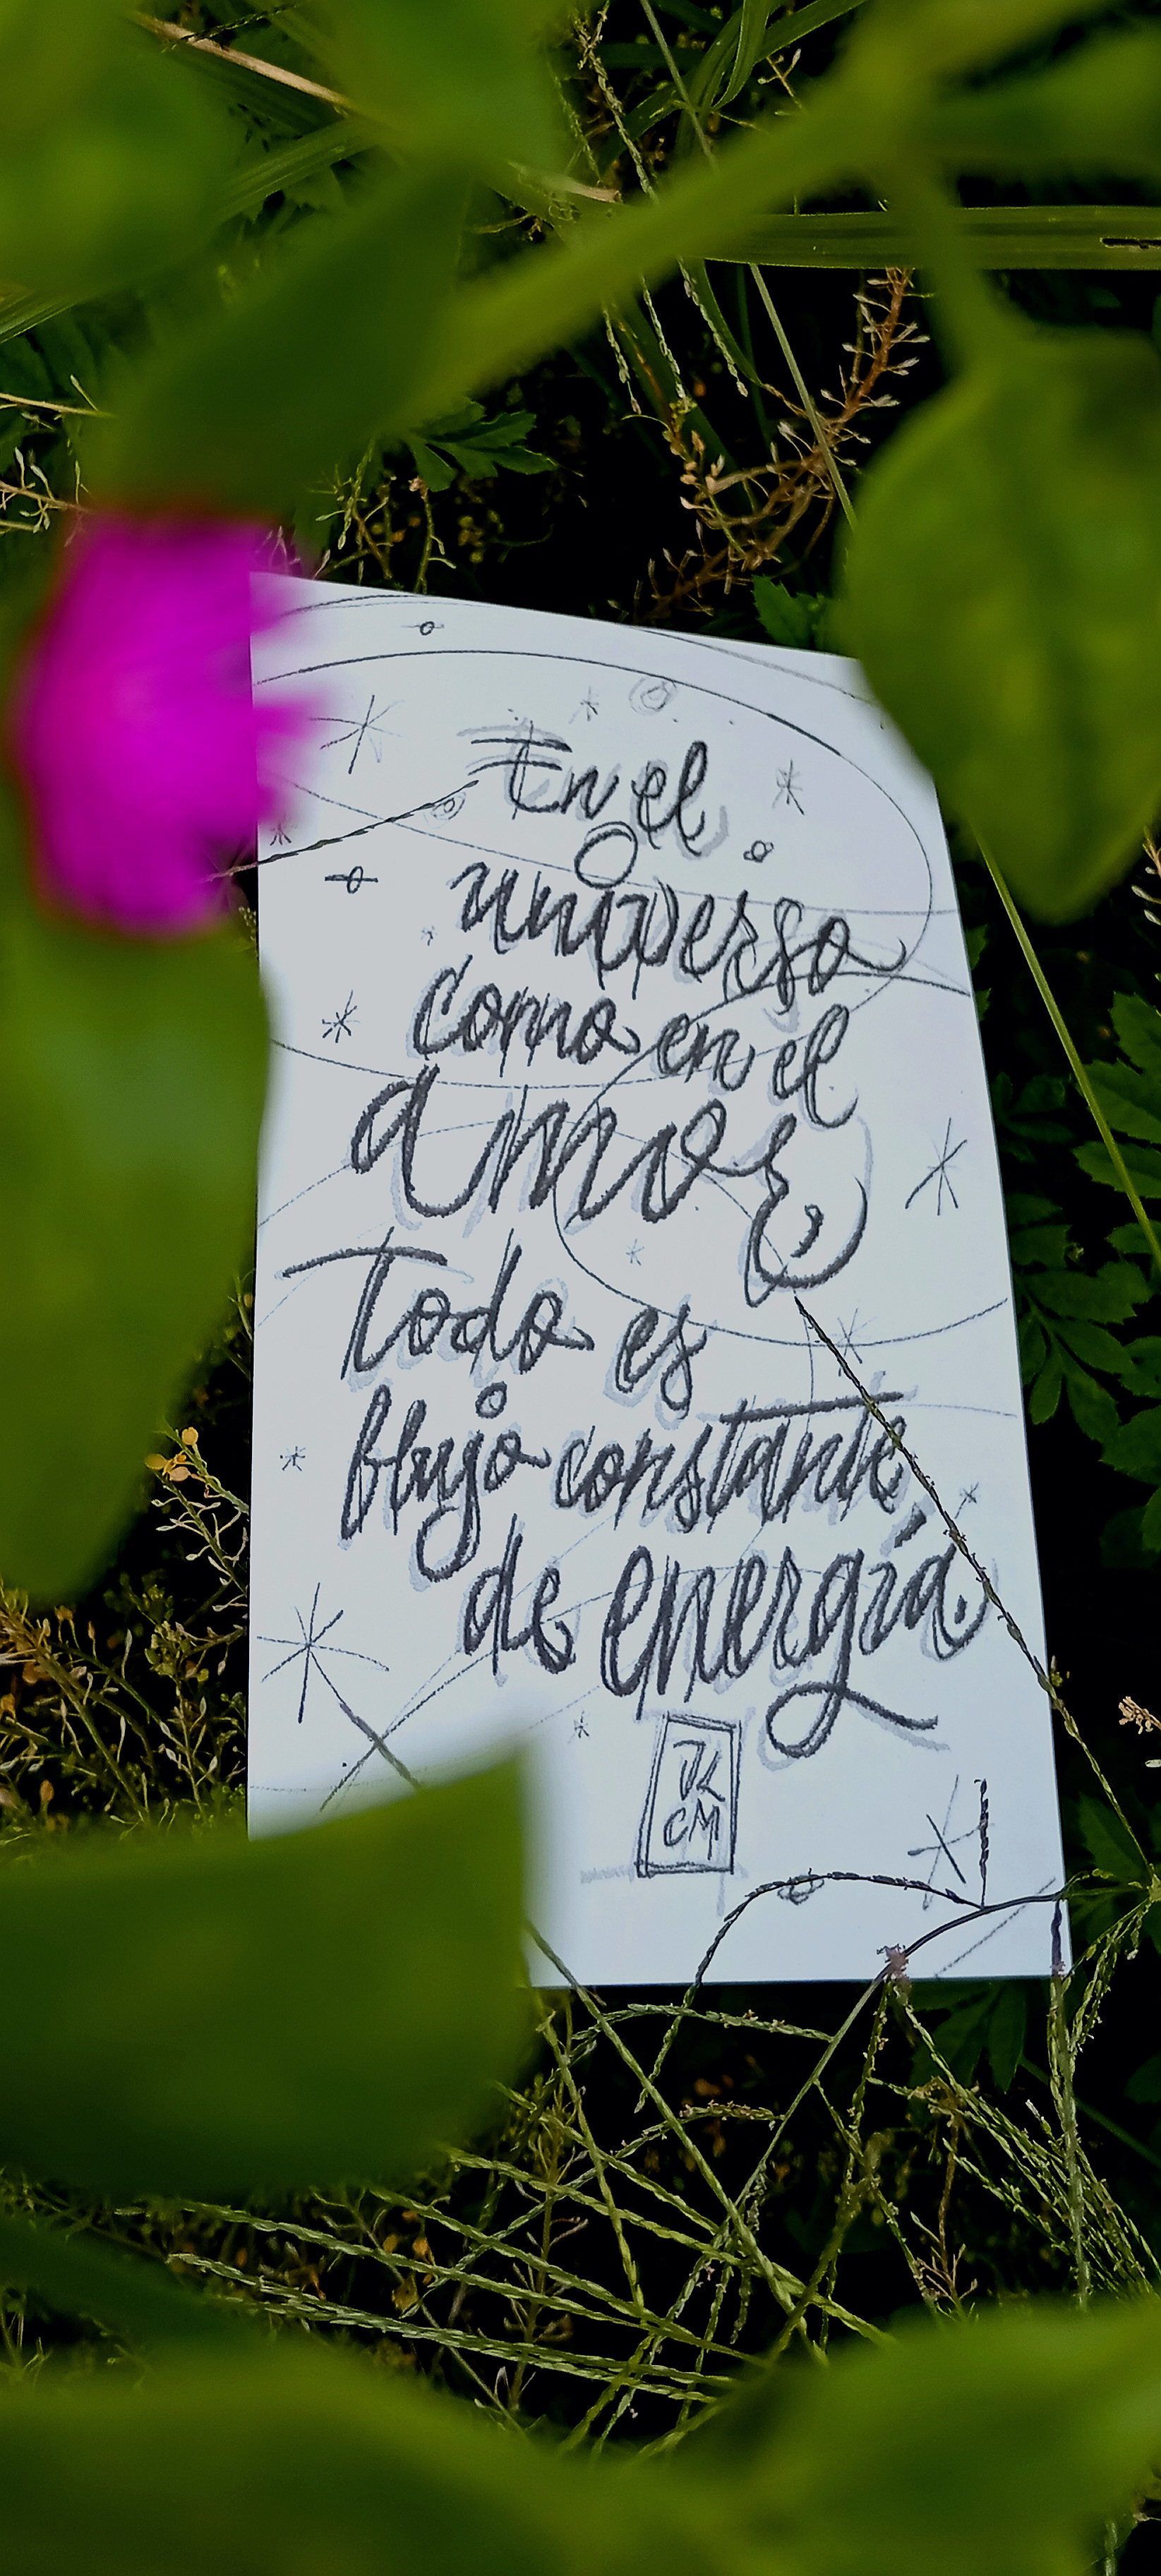 En el
universo
como en el
amor,
Todo es
flujo constante
de energía.
JK
CM